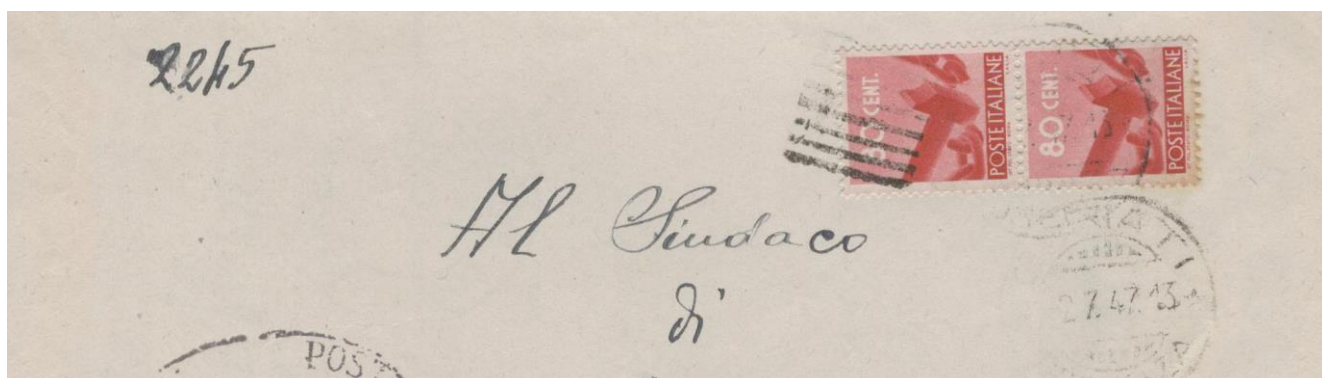 2245
80 CENT. POSTE ITALIANE
80 CENT. POSTE ITALIANE
Al Sindaco
di
2.7.47.13
POST